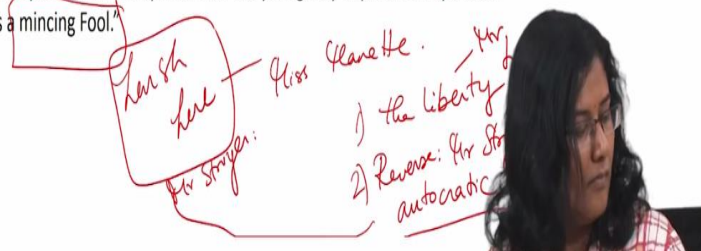 s a mincing Fool."
harsh
here
Miss Manette.
Mr Stryver:
1) the liberty
Mr
2) Reverse: Mr Str
autocratic